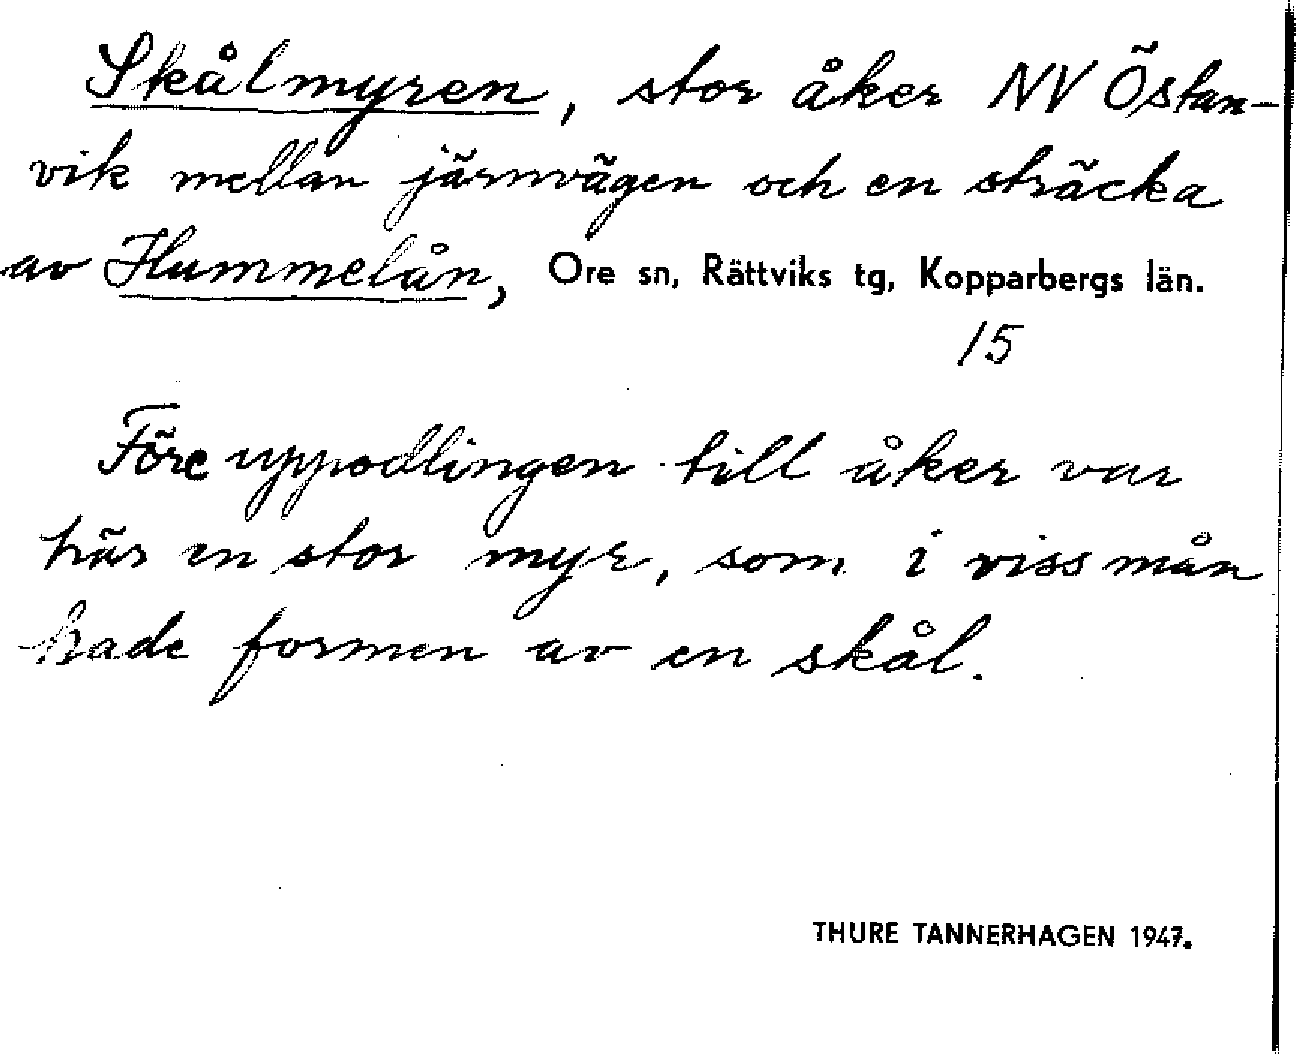 Skålmyren, stor åker NV Östan-
vik mellan järnvägen och en sträcka
av Hummelån, Ore sn, Rättviks tg, Kopparbergs län.
15
Före uppodlingen till åker var
här en stor myr, som i viss mån
hade formen av en skål.
THURE TANNERHAGEN 1947.